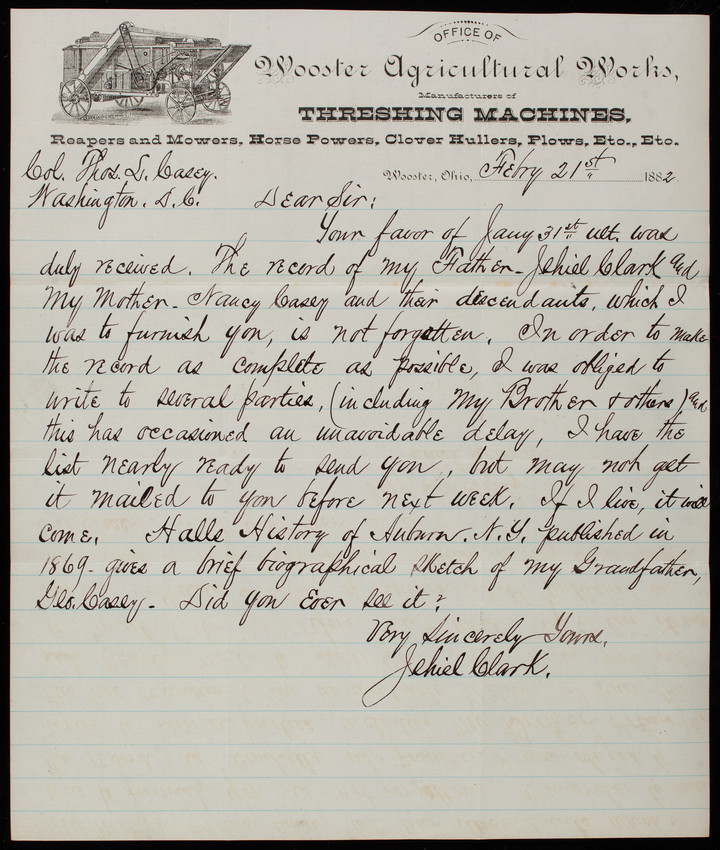 OFFICE OF
Wooster Agricultural Works,
Manufacturers of
THRESHING MACHINES,
Reapers and Mowers, Horse Powers, Clover Hullers, Plows, Etc., Etc.
Col. Thos. L. Casey.
Wooster, Ohio, Febry 21st 1882.
Washington. D. C.
Dear Sir:
Your favor of Jany 31st ult. was
duly received. The record of my Father - Jehiel Clark and
My Mother - Nancy Casey and their descendants, which I
was to furnish you, is not forgotten. In order to make
the record as complete as possible, I was obliged to
write to several parties, (including My Brother & others) and
this has occasioned an unavoidable delay, I have the
list nearly ready to send you, but may not get
it mailed to you before next week. If I live, it will
come. Halls History of Auburn. N.Y. published in
1869 - gives a brief biographical sketch of my Grandfather,
Geo. Casey - Did you Ever see it?
Very Sincerely Yours,
Jehiel Clark.